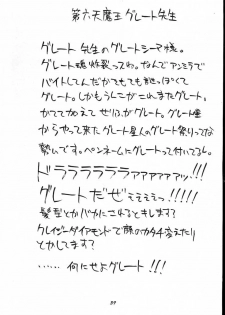 第六天魔王グレート先生
グレート先生のグレートシーマ様。
グレート魂炸裂ってわ。なんでアンミラで
バイトしてんだかてもても艶っぽくて
グレート。しかもうしこがこれまたグレート。
かてて加えてゼリーがグレート。グレート星
からやって来たグレート星人のグレート祭りってな
勢いです。ペンネームにグレートって付いてるし。
ドララララララァァァァァァッ!!!
グレートだぜぇぇぇぇっ!!!!!
髪型とかバカにされるとキレます?
クレイジーダイアモンドで顔のカタチ変えたり
とかしてます?
……何にせよグレート!!!